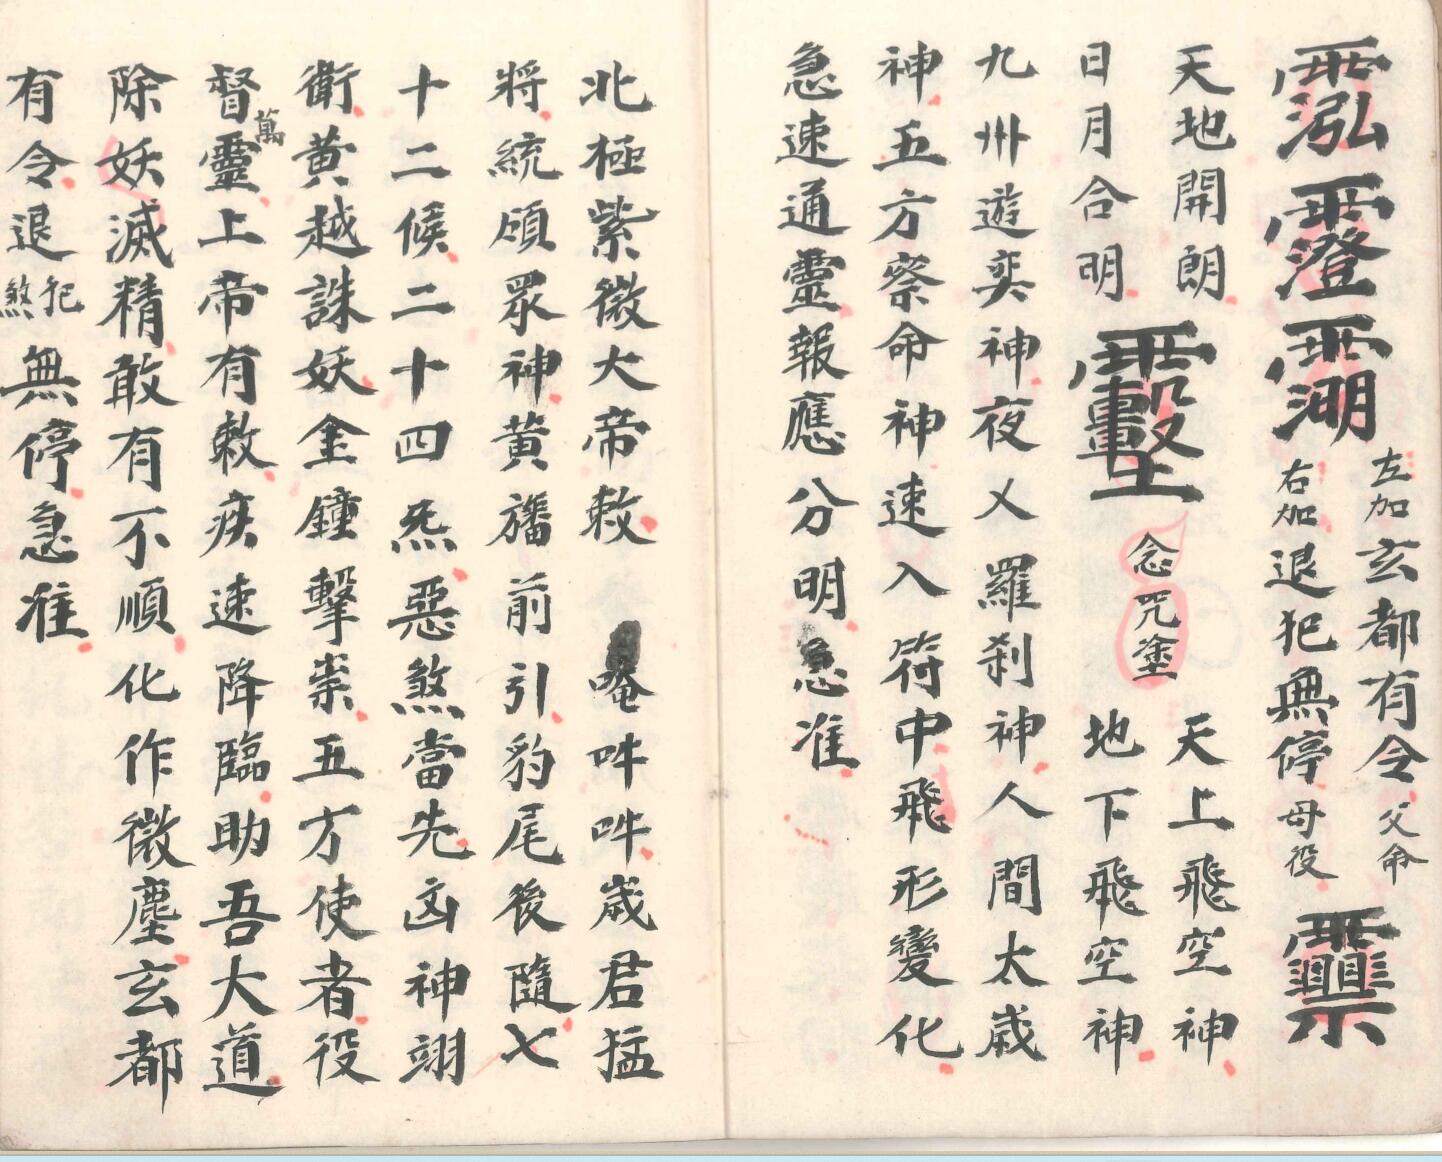 左加玄都有令父命
右加退犯無停母役
天地開朗
日月合明
念咒塗
天上飛空神
地下飛空神
九州遊奕神夜乂羅刹神人間太歲
神五方察命神速入符中飛形變化
急速通靈報應分明急准
北極紫微大帝敕
唵吽吽歲君猛
將統領眾神黃旛前引豹尾後隨七
十二候二十四炁惡煞當先凶神翊
衛黃越誅妖金鐘擊祟五方使者役
督萬靈上帝有敕疾速降臨助吾大道
除妖滅精敢有不順化作微塵玄都
有令退犯煞無停急准